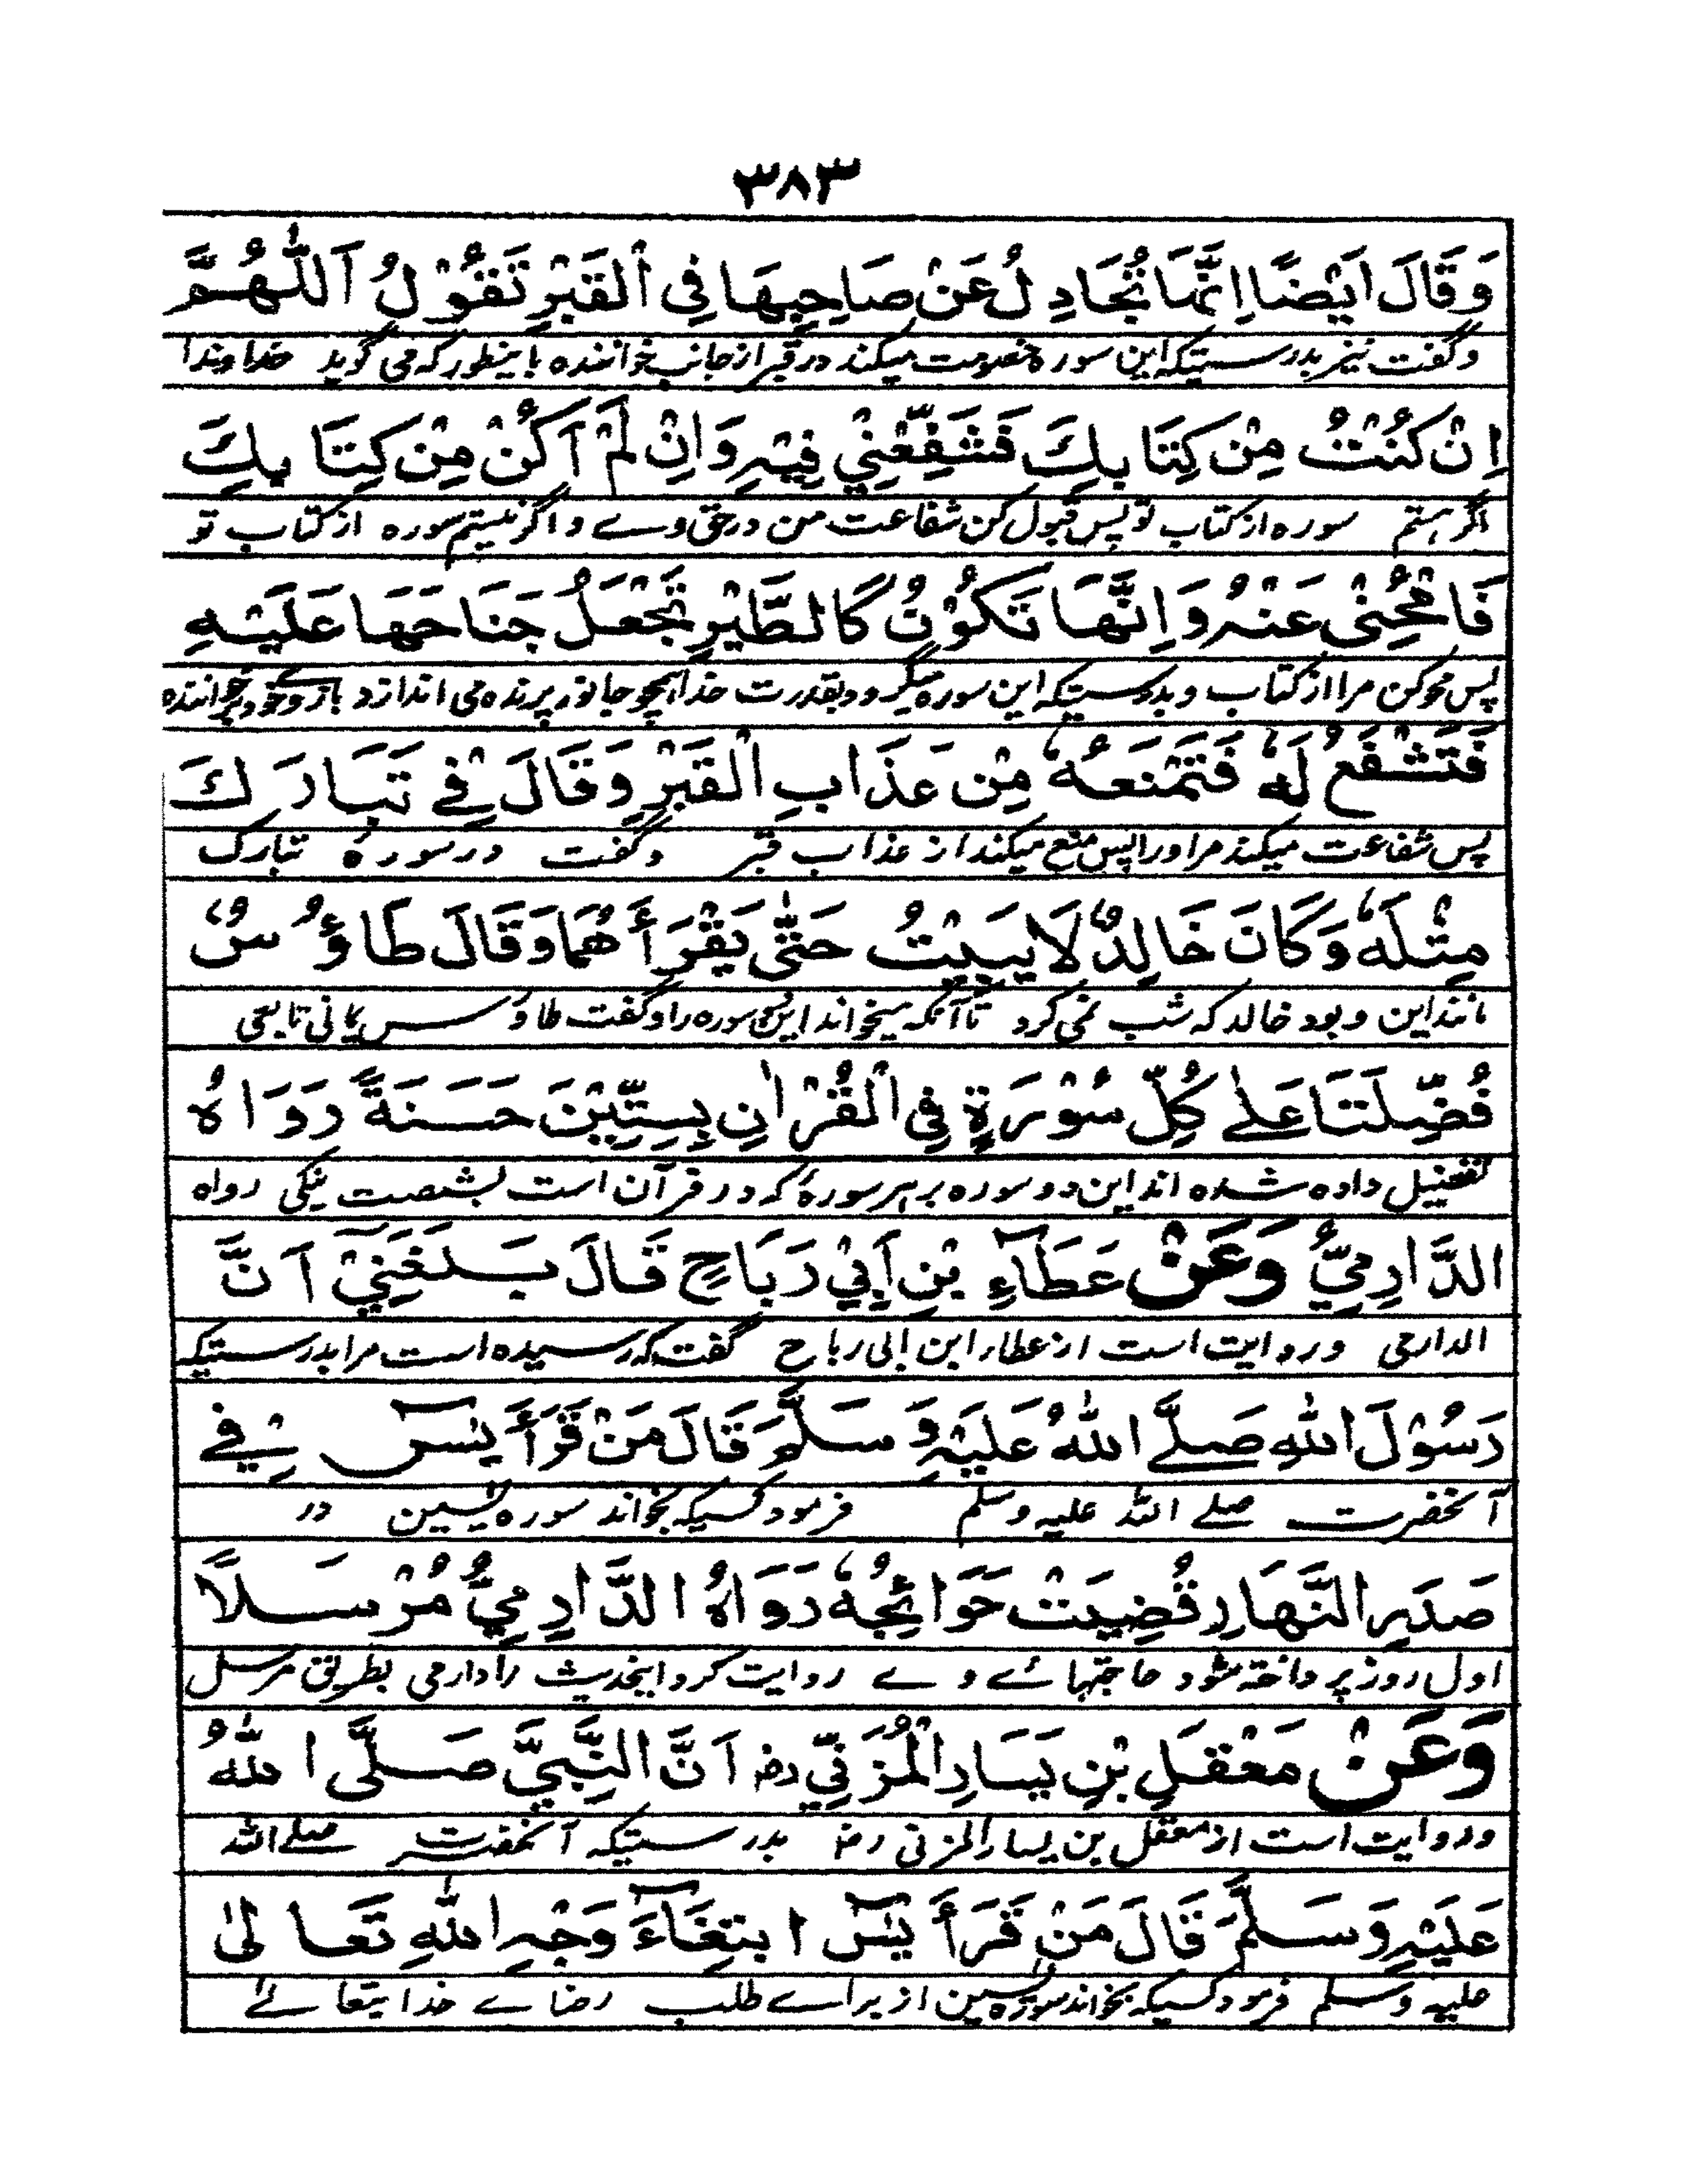 ٣٨٣
وَقَالَ اَيْضًا اِنَّهَا تُجَادِلُ عَنْ صَاحِبِهَا فِي الْقَبْرِ تَقُوْلُ اَللّٰهُمَّ
وگفت نیز بدرستیکه این سوره خصومت میکند در قبر از جانب خواننده باینطور که می گوید خداوندا
اِنْ كُنْتُ مِنْ كِتَابِكَ فَشَفِّعْنِيْ فِيْهِ وَاِنْ لَمْ اَكُنْ مِنْ كِتَابِكَ
اگر هستم سوره از کتاب تو پس قبول کن شفاعت من در حق وے و اگر نیستم سوره از کتاب تو
فَامْحُنِيْ عَنْهُ وَاِنَّهَا تَكُوْنُ كَالطَّيْرِ تَجْعَلُ جَنَاحَهَا عَلَيْهِ
پس محو کن مرا از کتاب و بدرستیکه این سوره میگردد بقدرت خدا همچو جانور پرنده می اندازد بازوے خود بر خواننده
فَتَشْفَعُ لَهٗ فَتَمْنَعُهٗ مِنْ عَذَابِ الْقَبْرِ وَقَالَ فِيْ تَبَارَكَ
پس شفاعت میکند مر او را پس منع میکند از عذاب قبر وگفت در سورهٔ تبارک
مِثْلَهٗ وَكَانَ خَالِدٌ لَا يَبِيْتُ حَتّٰى يَقْرَأَهُمَا وَقَالَ طَاؤُسٌ
مانند این و بود خالد که شب نمی کرد تا آنکه میخواند این سوره را وگفت طاؤس یمانی تابعی
فُضِّلَتَا عَلٰى كُلِّ سُوْرَةٍ فِي الْقُرْاٰنِ بِسِتِّيْنَ حَسَنَةً رَوَاهُ
تفضیل داده شده اند این دو سوره بر هر سورهٔ که در قرآن است بشصت نیکی رواه
الدَّارِمِيُّ وَعَنْ عَطَاءِ بْنِ اَبِيْ رَبَاحٍ قَالَ بَلَغَنِيْ اَنَّ
الدارمی و روایت است از عطاء ابن ابی رباح گفت که رسیده است مرا بدرستیکه
رَسُوْلَ اللّٰهِ صَلَّے اللّٰهُ عَلَيْهِ وَسَلَّمَ قَالَ مَنْ قَرَأَ يٰسٓ فِيْ
آنحضرت صلے اللّٰه علیه وسلم فرمود کسیکه بخواند سوره یٰسین در
صَدْرِ النَّهَارِ قُضِيَتْ حَوَائِجُهٗ رَوَاهُ الدَّارِمِيُّ مُرْسَلًا
اول روز پرداخته شود حاجتهائے وے روایت کرد اینحدیث را دارمی بطریق مرسل
وَعَنْ مَعْقَلِ بْنِ يَسَارِ الْمُزَنِيِّ رض اَنَّ النَّبِيَّ صَلَّى اللّٰهُ
و روایت است از معقل بن یسار المزنی رض بدرستیکه آنحضرت صلے اللّٰه
عَلَيْهِ وَسَلَّمَ قَالَ مَنْ قَرَأَ يٰسٓ ابْتِغَاءَ وَجْهِ اللّٰهِ تَعَالٰى
علیه وسلم فرمود کسیکه بخواند سوره یٰسین از براے طلب رضاے خدایتعالے